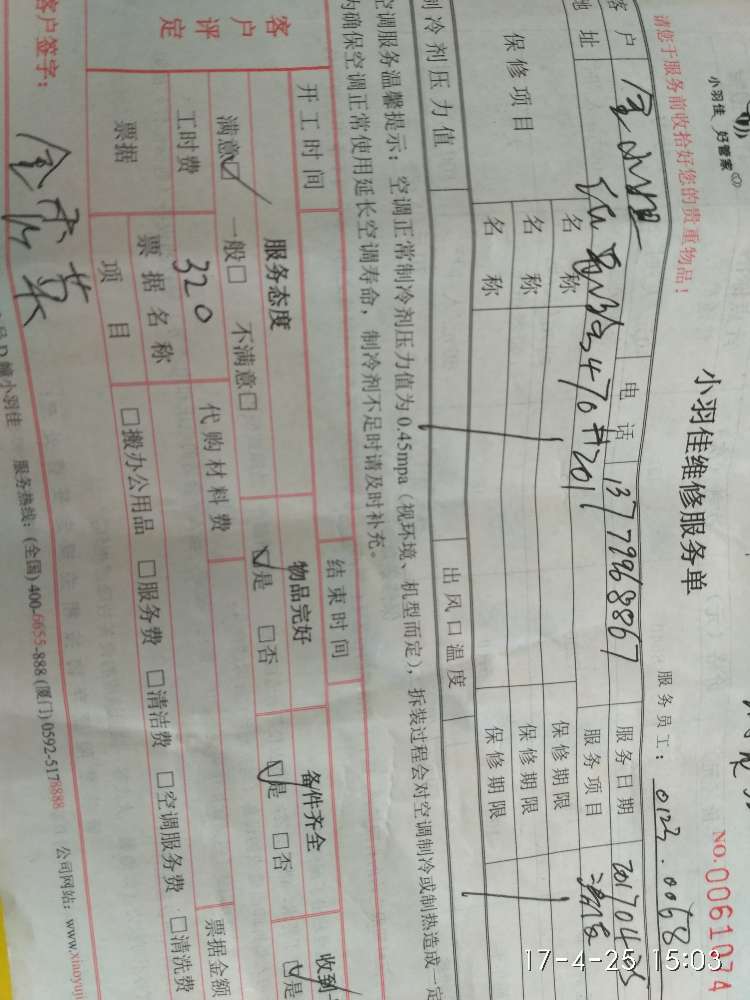 小羽佳 好管家
小羽佳维修服务单
NO.0061074
请您于服务前收拾好您的贵重物品！
服务员工：0123.0068
客户
电话 13779968867
服务日期
地址 470#201
服务项目
保修项目
名称
保修期限
名称
保修期限
名称
保修期限
制冷剂压力值
出风口温度
空调服务温馨提示：空调正常制冷剂压力值为0.45mpa（视环境、机型而定），拆装过程会对空调制冷或制热造成一定
为确保空调正常使用延长空调寿命，制冷剂不足时请及时补充。
开工时间
结束时间
客户评定
服务态度
物品完好
备件齐全
收到
满意☑ 一般□ 不满意□
☑是 □否
☑是 □否
☑是
工时费 320
代购材料费
票据
票据名称
票据金额
项目
□搬办公用品 □服务费 □清洁费 □空调服务费 □清洗费
客户签字：
幢小羽佳 服务热线：(全国)400-6655-888 (厦门)0592-5178888 公司网站：www.xiaoyuji
17-4-25 15:03